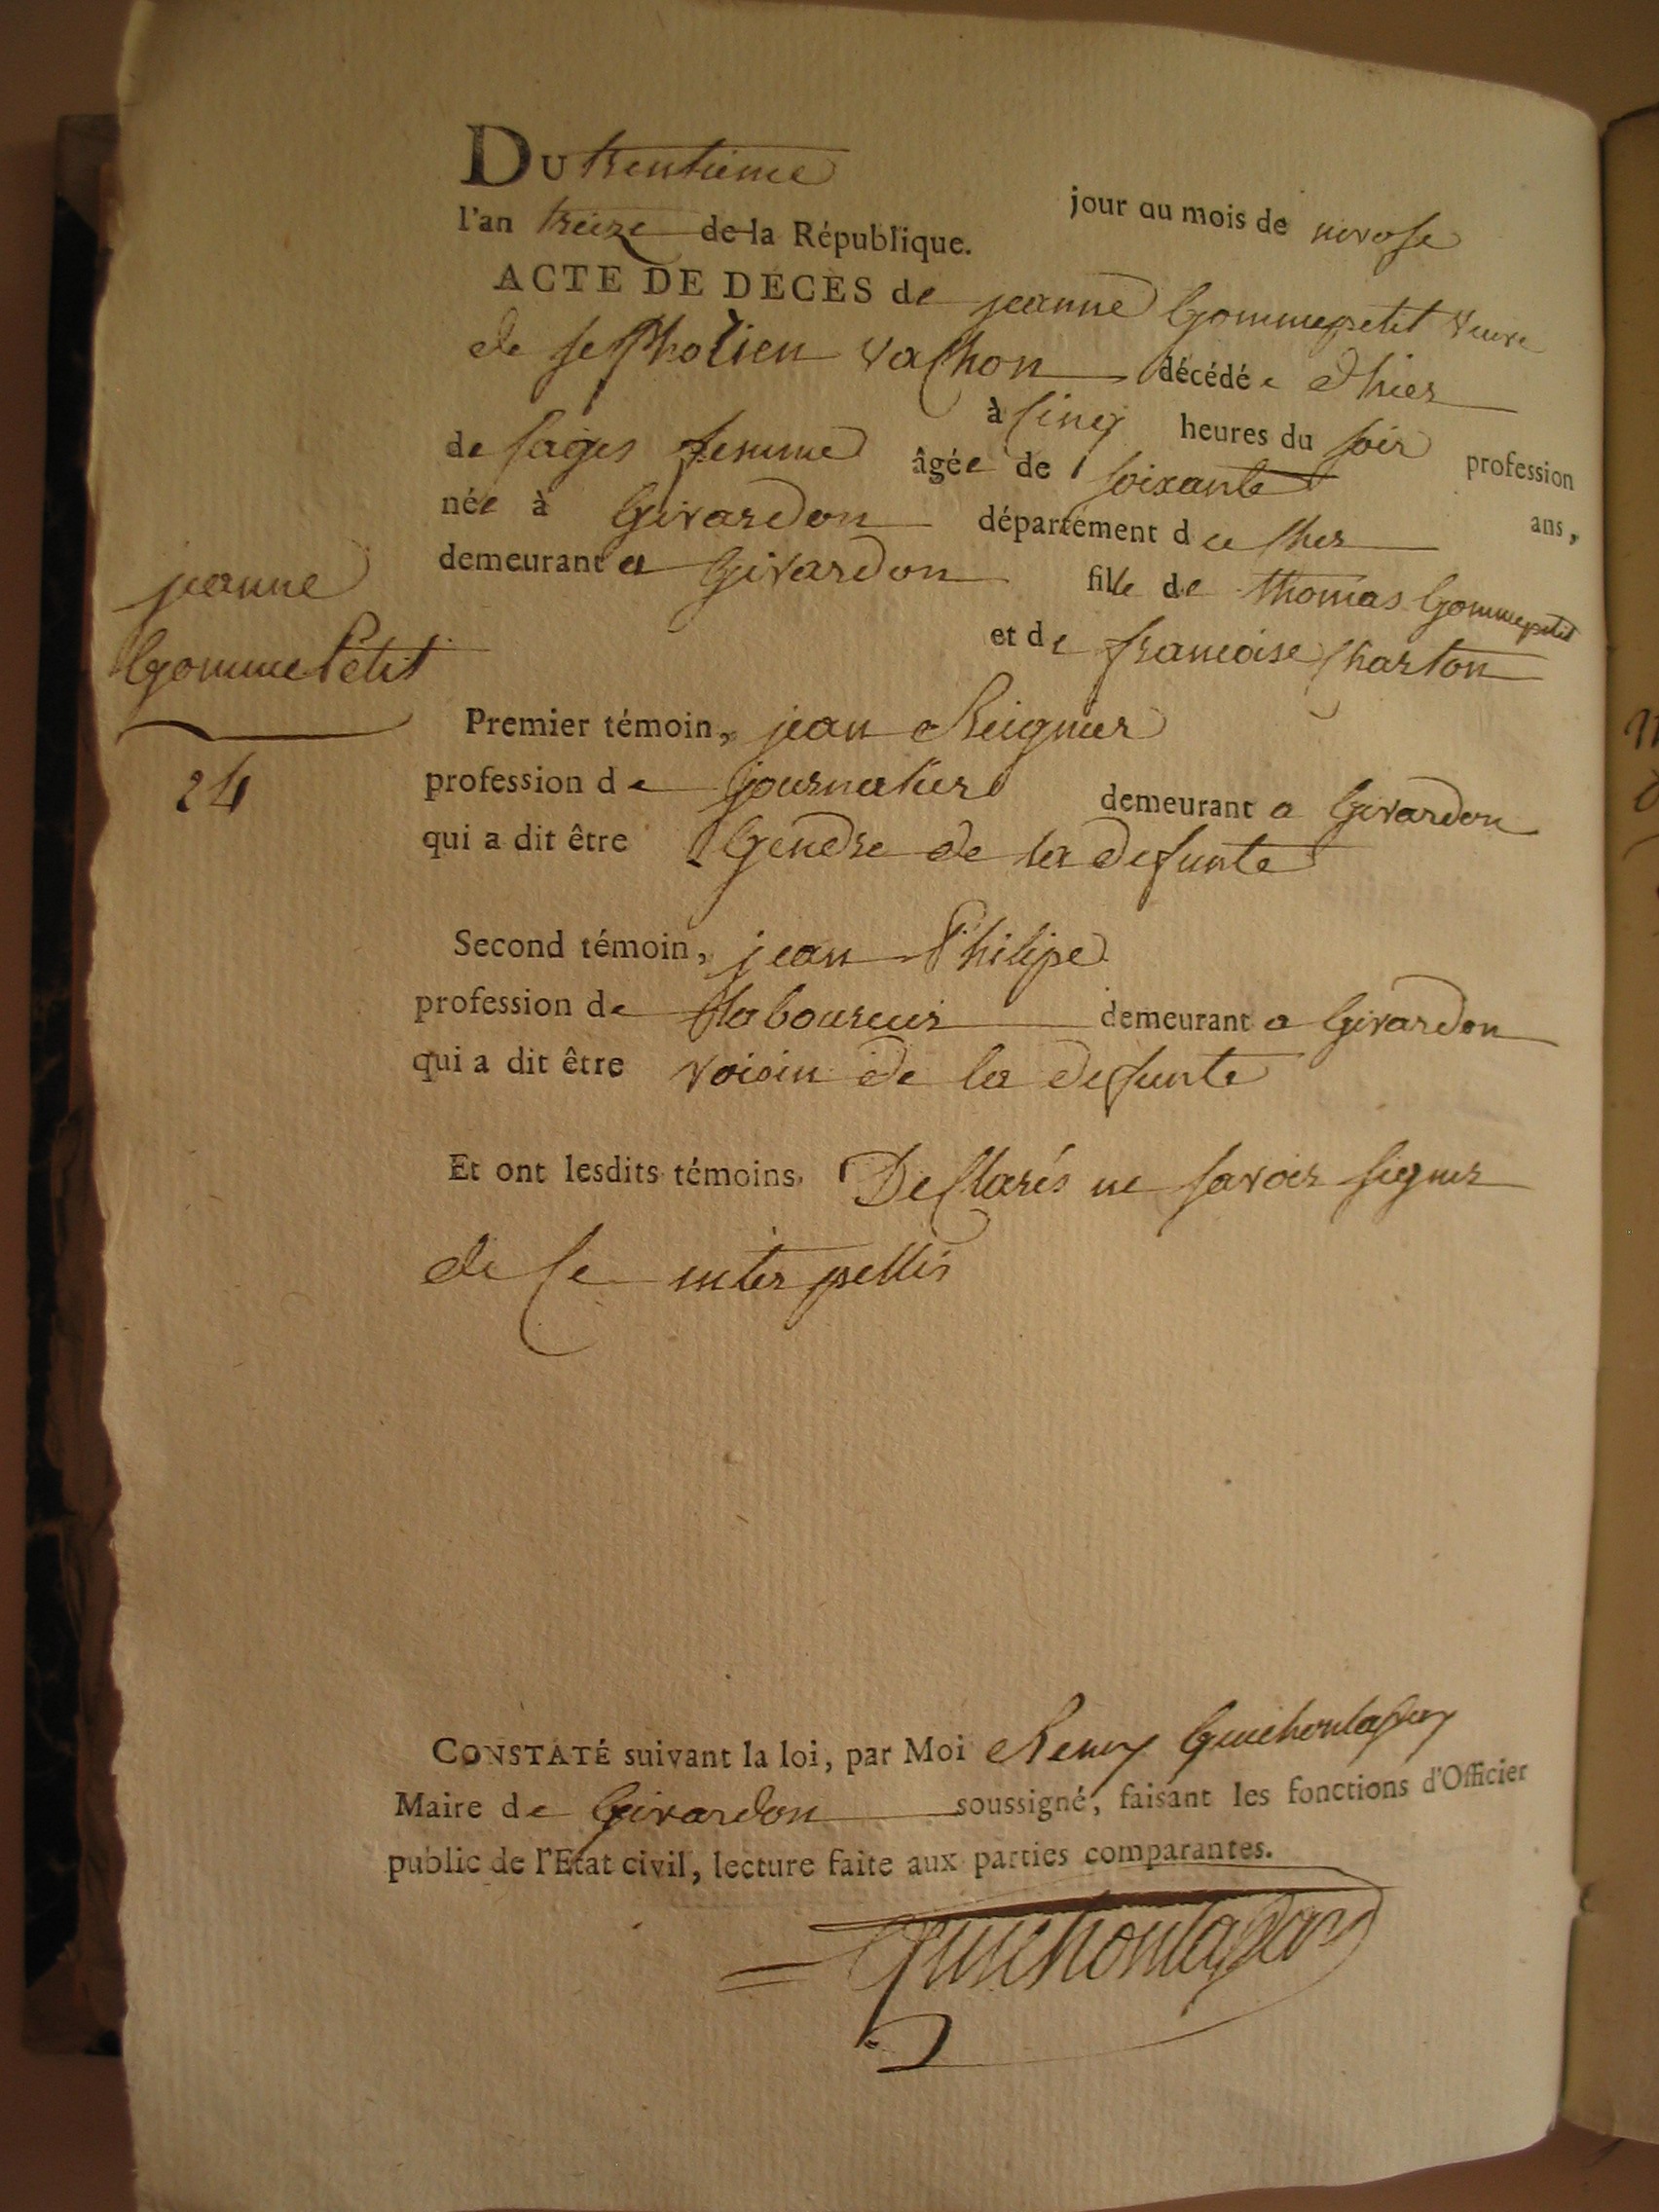 DU trentieme jour du mois de nivose
l'an treize de la République.
ACTE DE DÉCÈS de jeanne Gommepetit veuve
de Vachon décédée d'hier
à cinq heures du soir profession
de sages femme âgée de soixante ans,
née à Givardon département du cher
demeurant a Givardon fille de thomas Gommepetit
et de francoise charton
jeanne
Gomme Petit
24
Premier témoin, jean Reignier
profession de journalier demeurant a Givardon
qui a dit être Gendre de la defunte
Second témoin, jean Philipe
profession de laboureur demeurant a Givardon
qui a dit être voisin de la defunte
Et ont lesdits témoins, Declarés ne savoir signer
de ce interpellés
CONSTATÉ suivant la loi, par Moi Remy
Maire de Givardon soussigné, faisant les fonctions d'Officier
public de l'Etat civil, lecture faite aux parties comparantes.